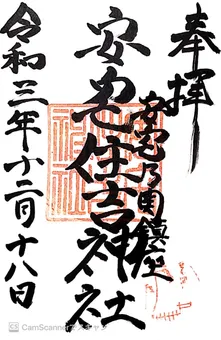 奉拝
安宅乃関鎮座
安宅住吉神社
令和三年十二月十八日
CamScannerでスキャン